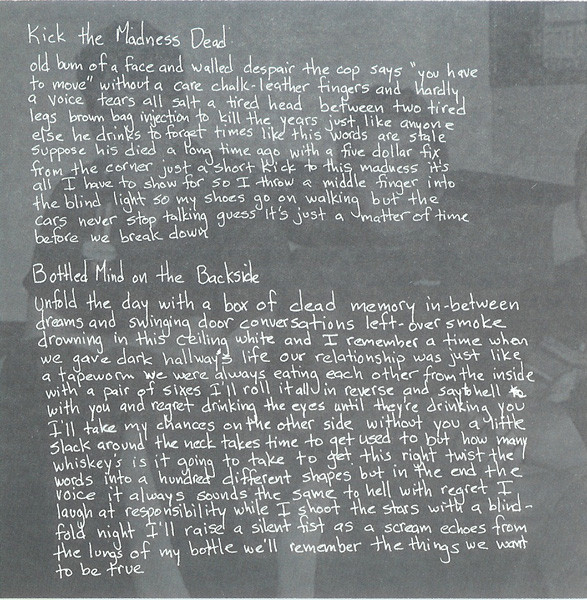 Kick the Madness Dead
old bum of a face and walled despair the cop says "you have
to move" without a care chalk-leather fingers and hardly
a voice tears all salt a tired head between two tired
legs brown bag injection to kill the years just like anyone
else he drinks to forget times like this words are stale
suppose his died a long time ago with a five dollar fix
from the corner just a short kick to this madness it's
all I have to show for so I throw a middle finger into
the blind light so my shoes go on walking but the
cars never stop talking guess it's just a matter of time
before we break down
Bottled Mind on the Backside
unfold the day with a box of dead memory in-between
dreams and swinging door conversations left-over smoke
drowning in this ceiling white and I remember a time when
we gave dark hallways life our relationship was just like
a tapeworm we were always eating each other from the inside
with a pair of sixes I'll roll it all in reverse and say to hell
with you and regret drinking the eyes until they're drinking you
I'll take my chances on the other side without you a little
slack around the neck takes time to get used to but how many
whiskey's is it going to take to get this right twist the
words into a hundred different shapes but in the end the
voice it always sounds the same to hell with regret I
laugh at responsibility while I shoot the stars with a blind-
fold night I'll raise a silent fist as a scream echoes from
the lungs of my bottle we'll remember the things we want
to be true